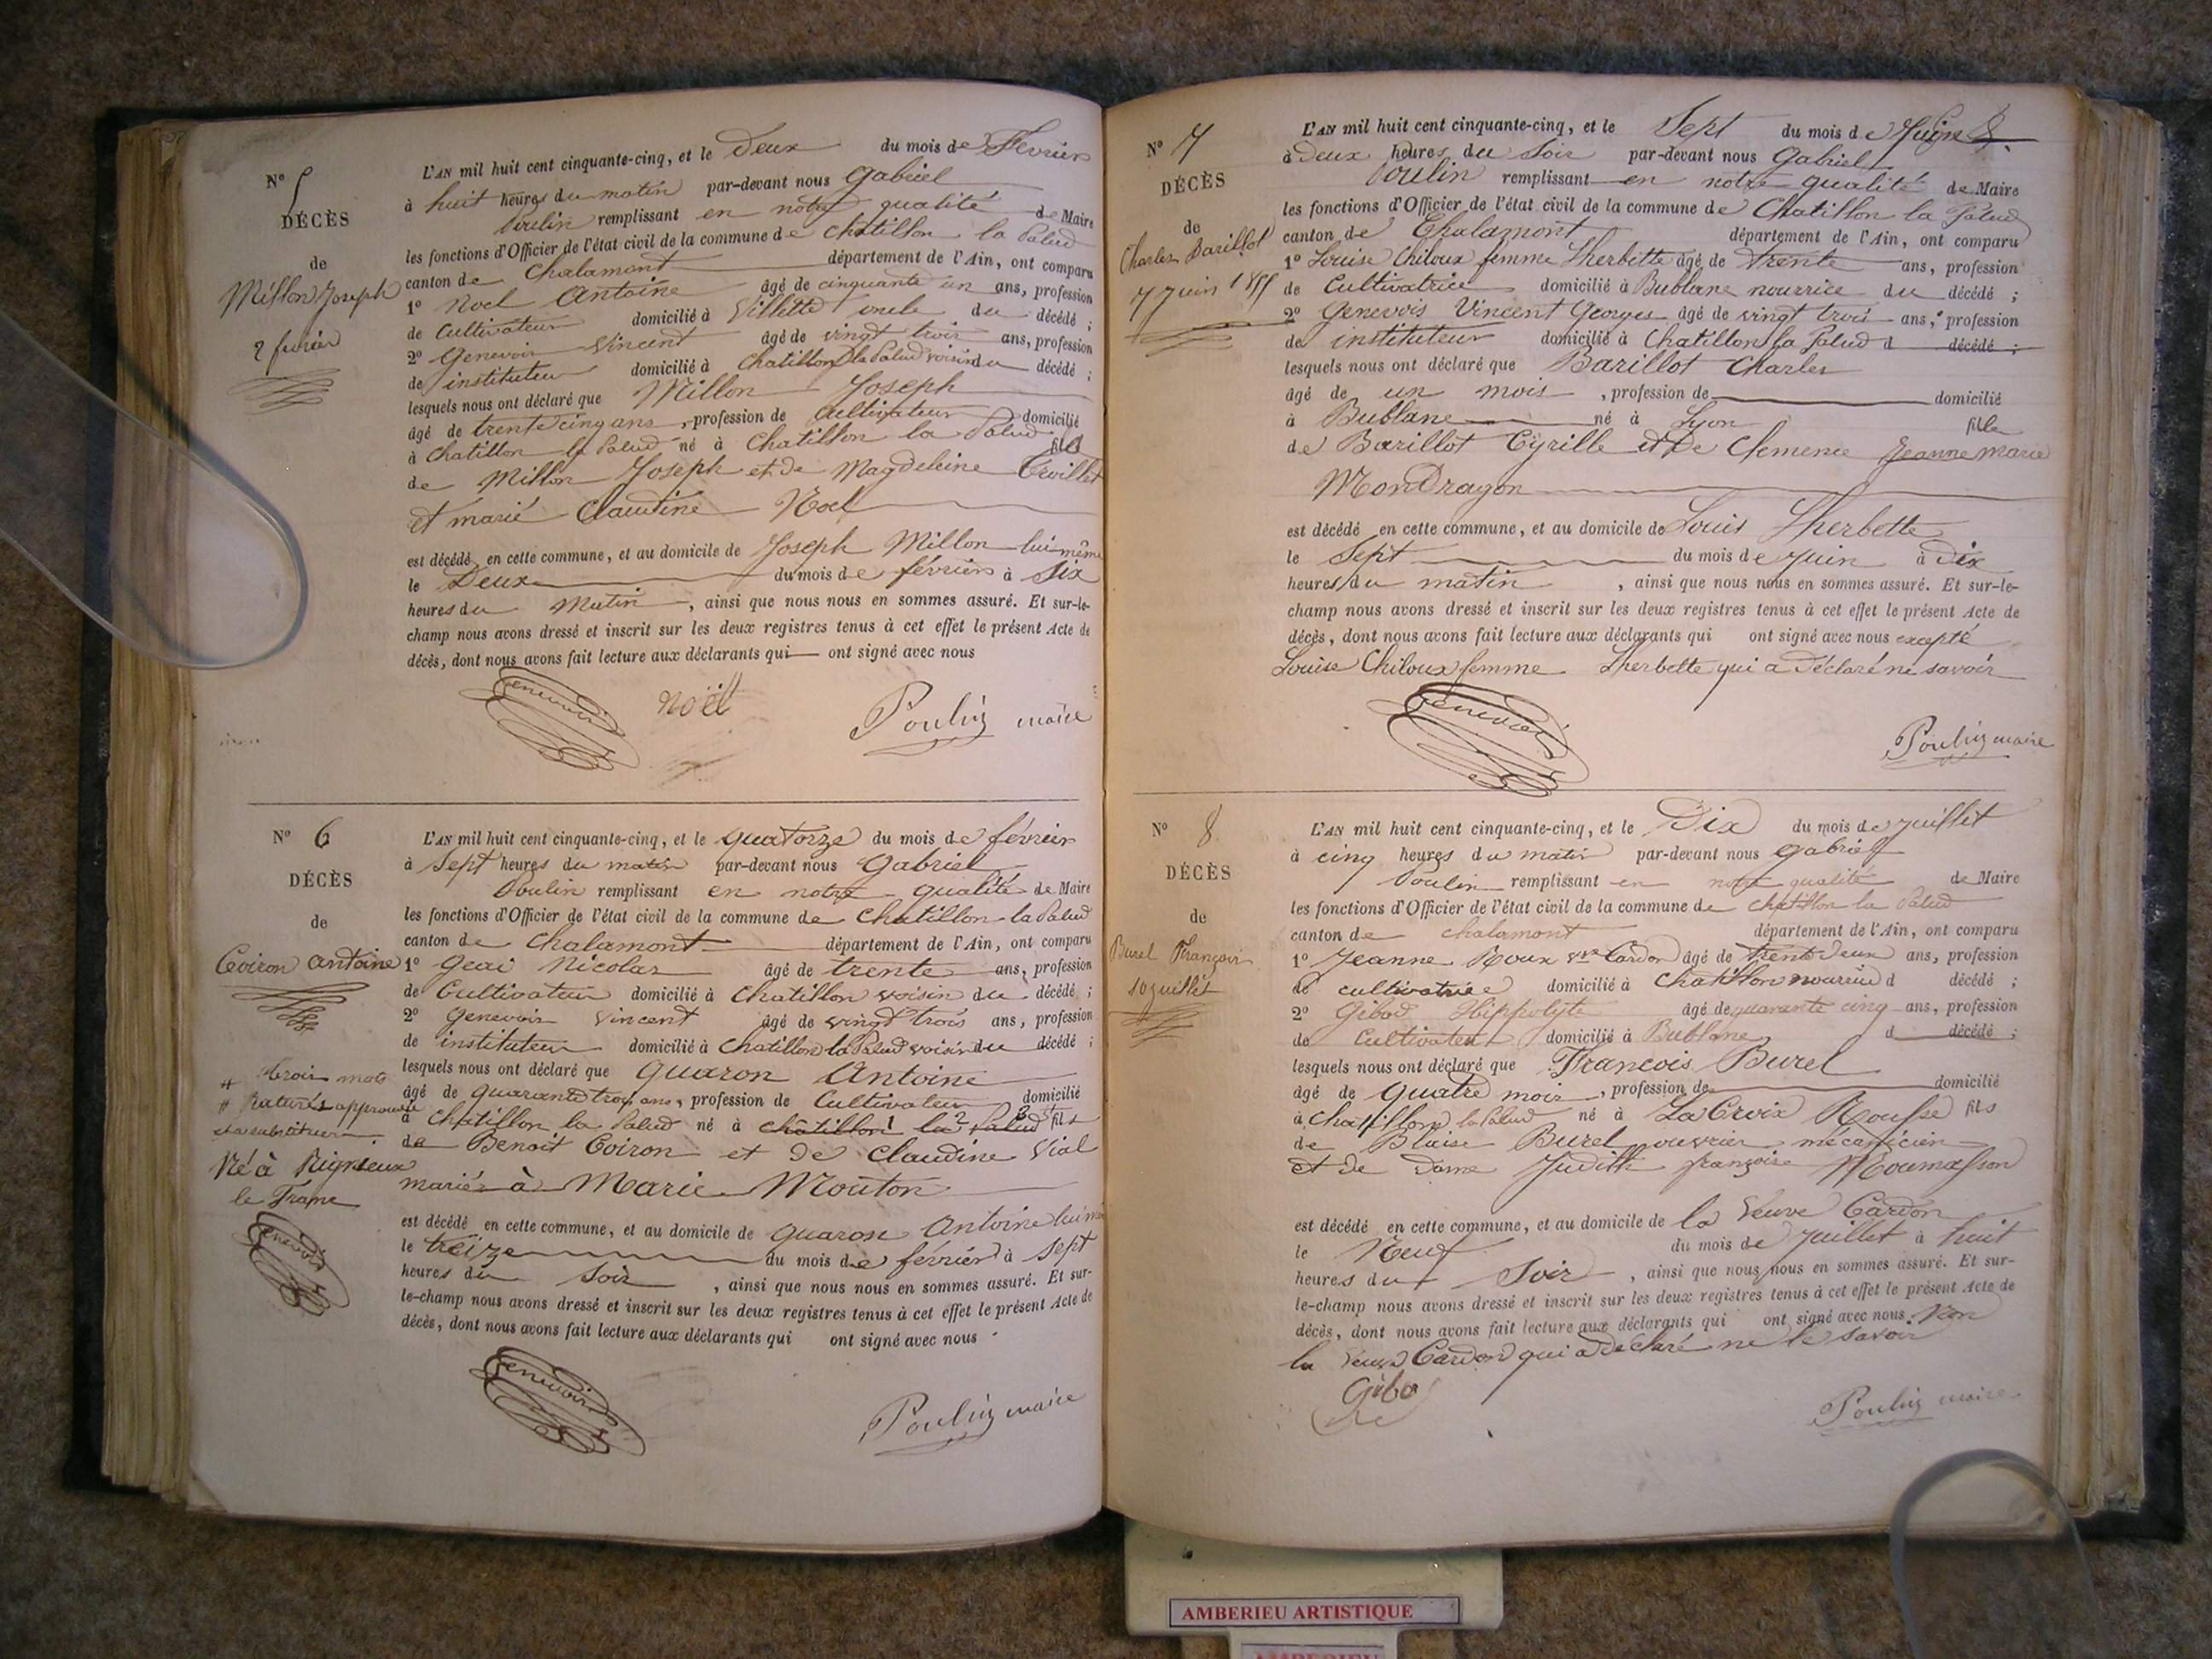 N° 5
DÉCÈS
de
Millon Joseph
2 fevrier
L'AN mil huit cent cinquante-cinq, et le Deux du mois de Fevrier
à huit heures du matin par-devant nous Gabriel
Poulin remplissant en notre qualité de Maire
les fonctions d'Officier de l'état civil de la commune de Chatillon la Palud
canton de Chalamont département de l'Ain, ont comparu
1° Noel Antoine âgé de cinquante un ans, profession
de Cultivateur domicilié à Villette oncle du décédé ;
2° Genevois Vincent âgé de vingt trois ans, profession
de instituteur domicilié à Chatillon la Palud voisin du décédé ;
lesquels nous ont déclaré que Millon Joseph
âgé de trente cinq ans, profession de Cultivateur domicilié
à Chatillon la Palud né à Chatillon la Palud fils
de Millon Joseph et de Magdeleine
et marié Claudine Noel
est décédé en cette commune, et au domicile de Joseph Millon lui même
le Deux du mois de février à Six
heures du Matin, ainsi que nous nous en sommes assuré. Et sur-le-
champ nous avons dressé et inscrit sur les deux registres tenus à cet effet le présent Acte de
décès, dont nous avons fait lecture aux déclarants qui ont signé avec nous
Genevois noël Poulin maire
N° 6
DÉCÈS
de
Coiron Antoine
trois mots
raturés approuvés
Né à Rignieux
le Franc
Genevois
L'AN mil huit cent cinquante-cinq, et le quatorze du mois de février
à Sept heures du matin par-devant nous Gabriel
Poulin remplissant en notre qualité de Maire
les fonctions d'Officier de l'état civil de la commune de Chatillon la Palud
canton de Chalamont département de l'Ain, ont comparu
1° Geai Nicolas âgé de trente ans, profession
de Cultivateur domicilié à Chatillon voisin du décédé ;
2° Genevois Vincent âgé de vingt trois ans, profession
de instituteur domicilié à Chatillon la Palud voisin du décédé ;
lesquels nous ont déclaré que Quaron Antoine
âgé de quarante trois ans, profession de Cultivateur domicilié
à Chatillon la Palud né à châtillon la Palud fils
de Benoit Coiron et de Claudine Vial
marié à Marie Mouton
est décédé en cette commune, et au domicile de Quaron Antoine lui même
le treize du mois de février à Sept
heures du Soir, ainsi que nous nous en sommes assuré. Et sur-
le-champ nous avons dressé et inscrit sur les deux registres tenus à cet effet le présent Acte de
décès, dont nous avons fait lecture aux déclarants qui ont signé avec nous
Genevois Poulin maire
N° 7
DÉCÈS
de
Charles Barillot
7 Juin 1855
L'AN mil huit cent cinquante-cinq, et le Sept du mois de Juin
à Deux heures du Soir par-devant nous Gabriel
Poulin remplissant en notre qualité de Maire
les fonctions d'Officier de l'état civil de la commune de Chatillon la Palud
canton de Chalamont département de l'Ain, ont comparu
1° Louise Chiloux femme Lherbette âgé de trente ans, profession
de Cultivatrice domicilié à Bublane nourrice du décédé ;
2° Genevois Vincent Georges âgé de vingt trois ans, profession
de instituteur domicilié à Chatillon la Palud d décédé ;
lesquels nous ont déclaré que Barillot Charles
âgé de un mois, profession de domicilié
à Bublane né à Lyon fils
de Barillot Cyrille et De Clemence Jeanne marie
MonDragon
est décédé en cette commune, et au domicile de Louis Lherbette
le Sept du mois de Juin à Dix
heures du matin, ainsi que nous nous en sommes assuré. Et sur-le-
champ nous avons dressé et inscrit sur les deux registres tenus à cet effet le présent Acte de
décès, dont nous avons fait lecture aux déclarants qui ont signé avec nous excepté
Louise Chiloux femme Lherbette qui a déclaré ne savoir
Genevois Poulin maire
N° 8
DÉCÈS
de
Burel François
10 juillet
L'AN mil huit cent cinquante-cinq, et le Dix du mois de juillet
à cinq heures du matin par-devant nous Gabriel
Poulin remplissant en notre qualité de Maire
les fonctions d'Officier de l'état civil de la commune de Chatillon la Palud
canton de Chalamont département de l'Ain, ont comparu
1° Jeanne Roux vve Cardon âgé de trente deux ans, profession
de cultivatrice domicilié à Chatillon nourrice d décédé ;
2° Gibod Hippolyte âgé de quarante cinq ans, profession
de Cultivateur domicilié à Bublane d décédé ;
lesquels nous ont déclaré que François Burel
âgé de quatre mois, profession de domicilié
à Chatillon la Palud né à La Croix Rousse fils
de Blaise Burel ouvrier mécanicien
et de Dame Judith françoise
est décédé en cette commune, et au domicile de la Veuve Cardon
le Neuf du mois de juillet à huit
heures du Soir, ainsi que nous nous en sommes assuré. Et sur-
le-champ nous avons dressé et inscrit sur les deux registres tenus à cet effet le présent Acte de
décès, dont nous avons fait lecture aux déclarants qui ont signé avec nous. Non
la Veuve Cardon qui a déclaré ne le savoir
Gibo Poulin maire
AMBERIEU ARTISTIQUE
AMBERIEU